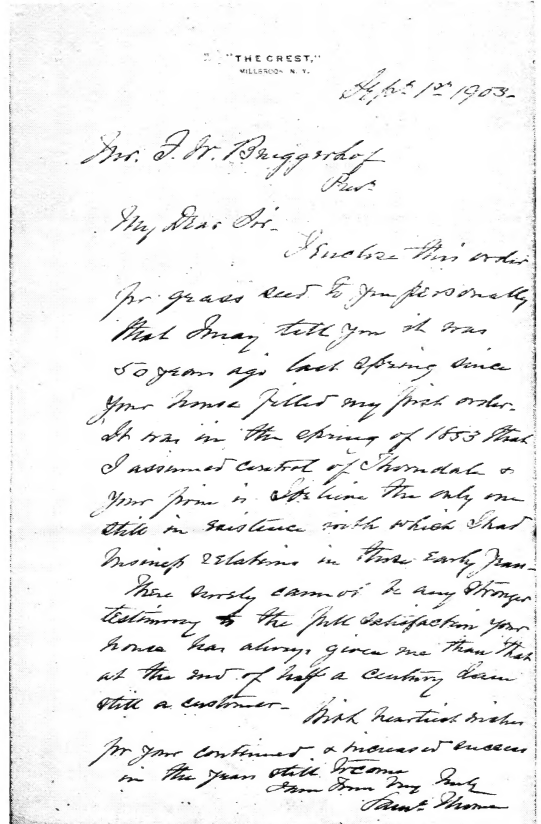 "THE CREST,"
MILLBROOK N. Y.
Sept. 1st 1903-
Mr. F. W. Bruggerhof
Prest
My Dear Sir-
I enclose this order
for grass seed to you personally
that I may tell you it was
50 years ago last spring since
your house filled my first order-
It was in the spring of 1853 that
I assumed control of Thorndale &
your firm is I believe the only one
still in existence with which I had
business relations in those early years-
There surely cannot be any stronger
testimony to the full satisfaction your
house has always given me than that
at the end of half a century I am
still a customer- With heartiest wishes
for your continued & increased success
in the years still to come
I am Yours Very Truly
Saml Thorne